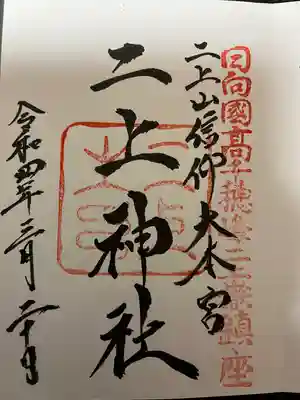 日向國高千穂二上嶽鎮座
二上山信仰大本宮
二上神社
令和四年三月二十日